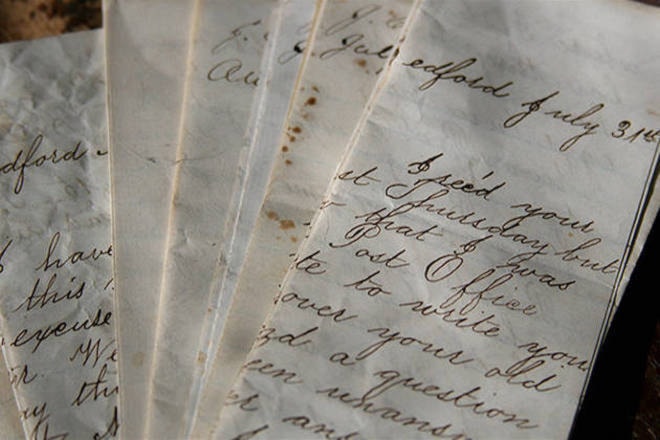 dford
I have
this
excuse
We
my th
Au
J. Jul
edford July 31st
I rec'd your
st Thursday but
that I was
Post Office
te to write you
over your old
nd a question
een unansw
er an